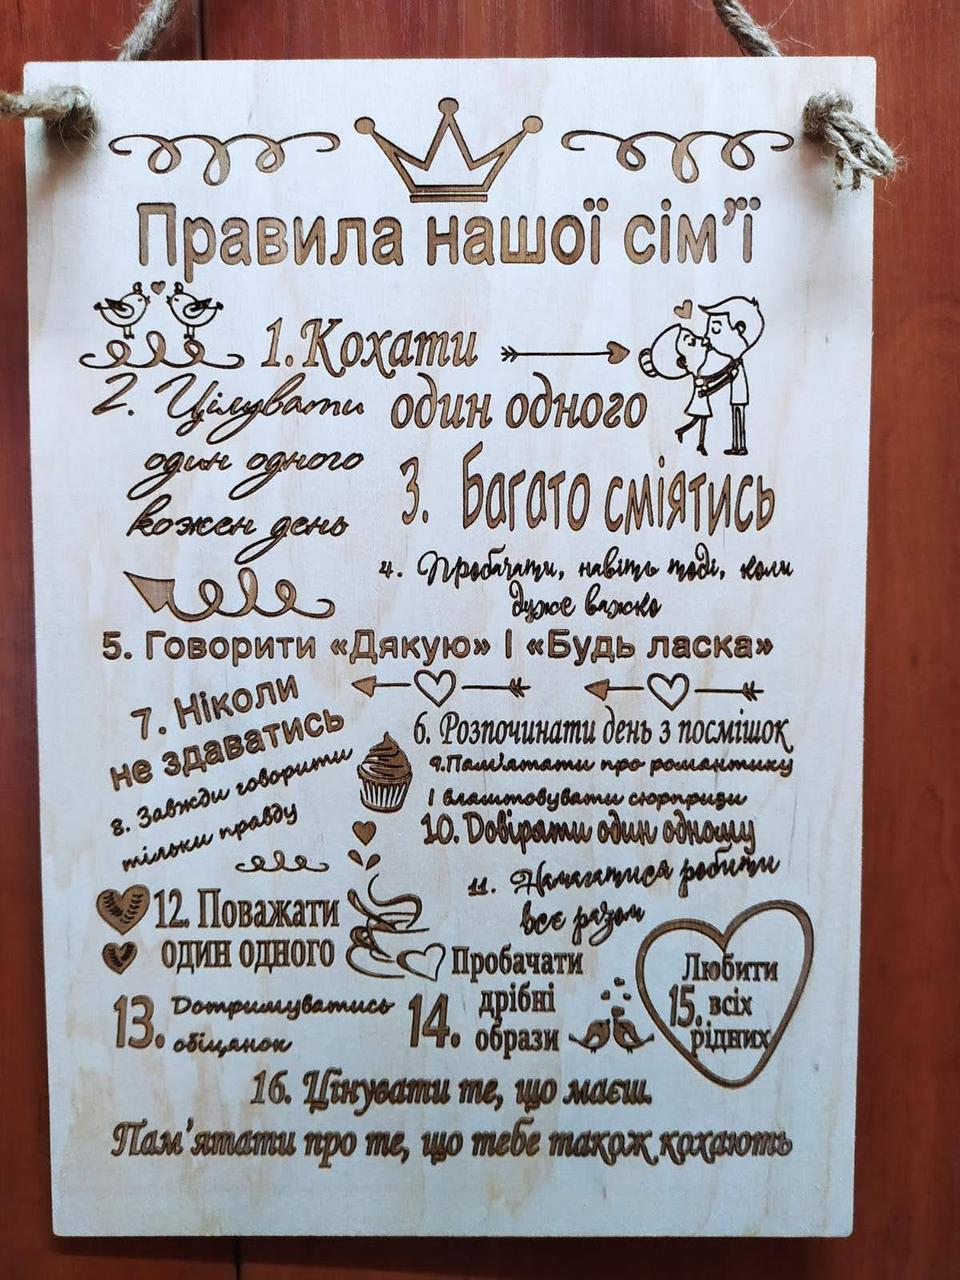 Правила нашої сім’ї
1. Кохати
один одного
2. Цілувати
один одного
кожен день
3. Багато сміятись
4. Пробачати, навіть тоді, коли
дуже важко
5. Говорити «Дякую» І «Будь ласка»
6. Розпочинати день з посмішок
7. Ніколи
не здаватись
8. Завжди говорити
тільки правду
9. Пам'ятати про романтику
І влаштовувати сюрпризи
10. Довіряти один одному
11. Намагатися робити
все разом
12. Поважати
один одного
13. Дотримуватись
обіцянок
14. Пробачати
дрібні
образи
15. Любити
всіх
рідних
16. Цінувати те, що маєш.
Пам’ятати про те, що тебе також кохають